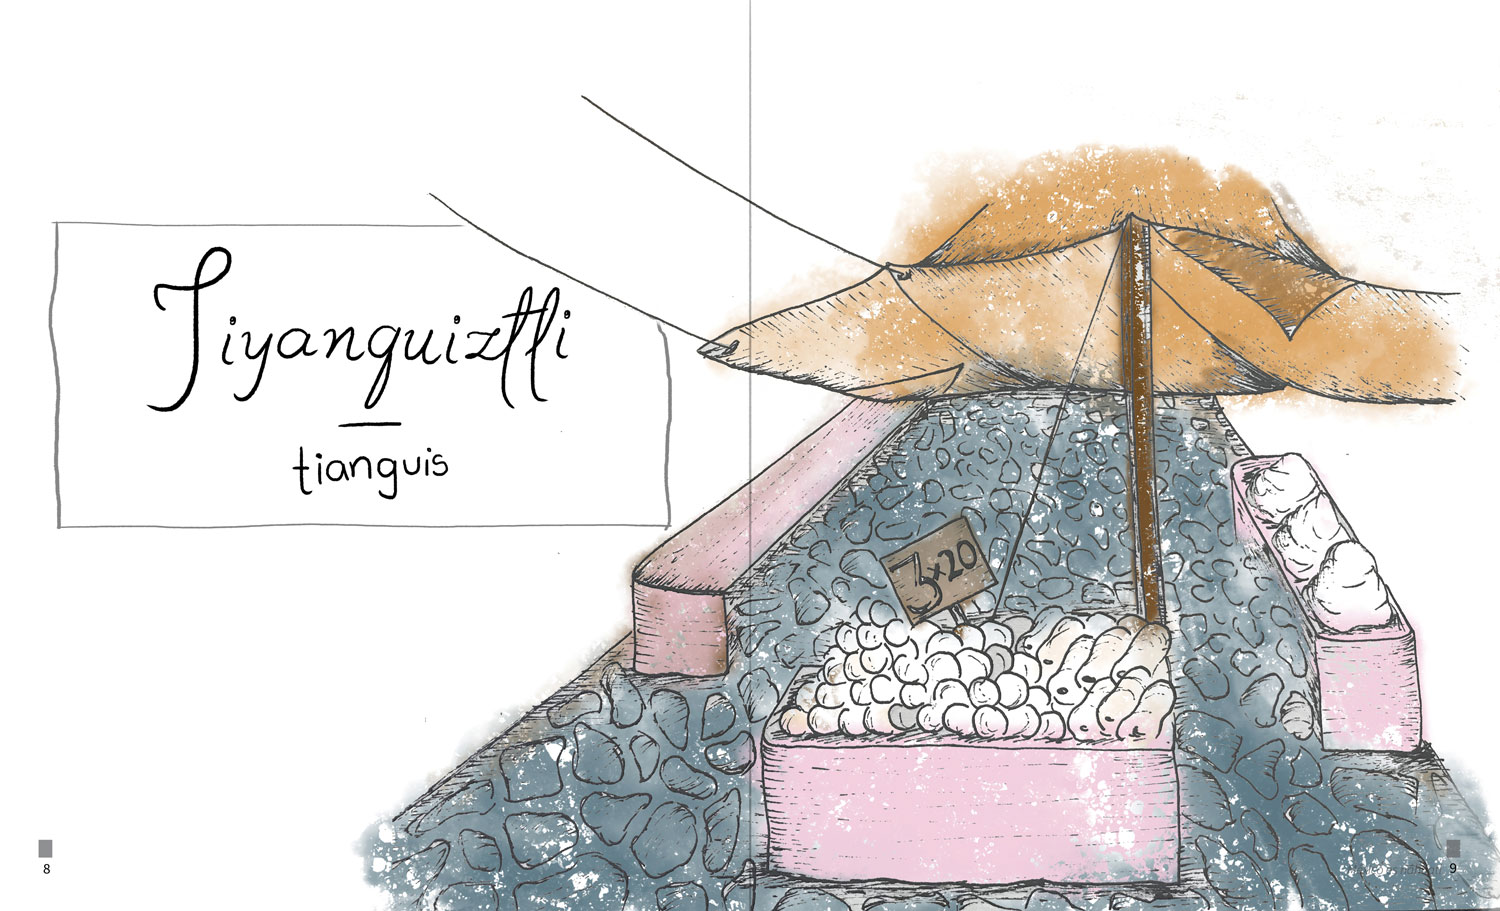 Tiyanguiztli
tianguis
3x20
8
9